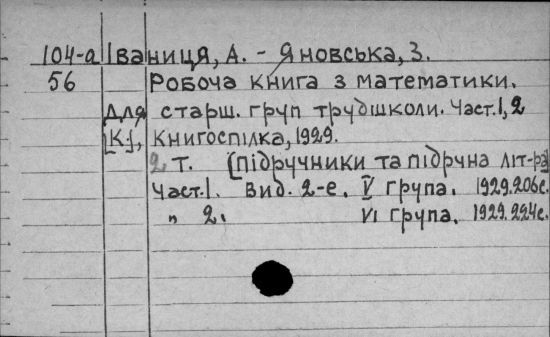 104-а Іваниця, А. - Яновська, З.
56 Робоча книга з математики.
Для старш. груп трудшколи. Част. 1, 2
[К.], Книгоспілка, 1929.
2 т. [Підручники та підрчна літ-ра]
Част. 1. Вид. 2-е. V група. 1929. 206 с.
" 2. VI група. 1929. 224 с.